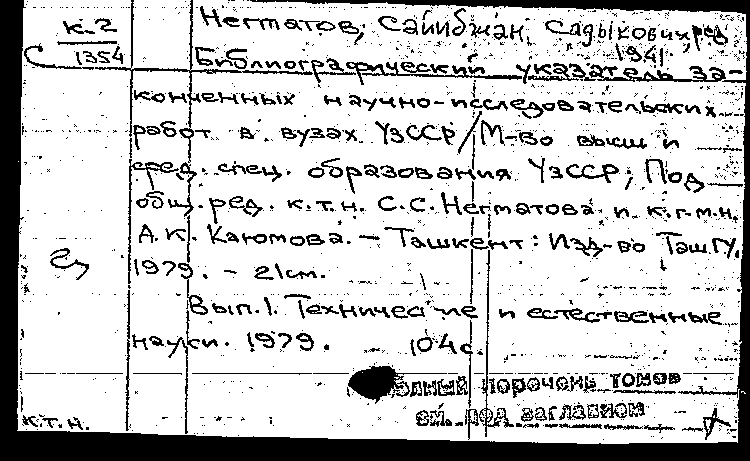 К-2
С 1354
Негматов, Сайибжан Садыкович, ред
1941
Библиографический указатель за-
конченных научно-исследовательских
работ в вузах УзССР/М-во высш и
сред. спец. образования УзССР; Под
общ. ред. к.т.н. С.С. Негматова и к.г-м.н.
А.К. Каюмова. – Ташкент: Изд-во ТашГУ,
1979. – 21см.
Вып.1. Технические и естественные
науки. 1979. 104с.
перечень томов
см. под заглавием
к.т.н.